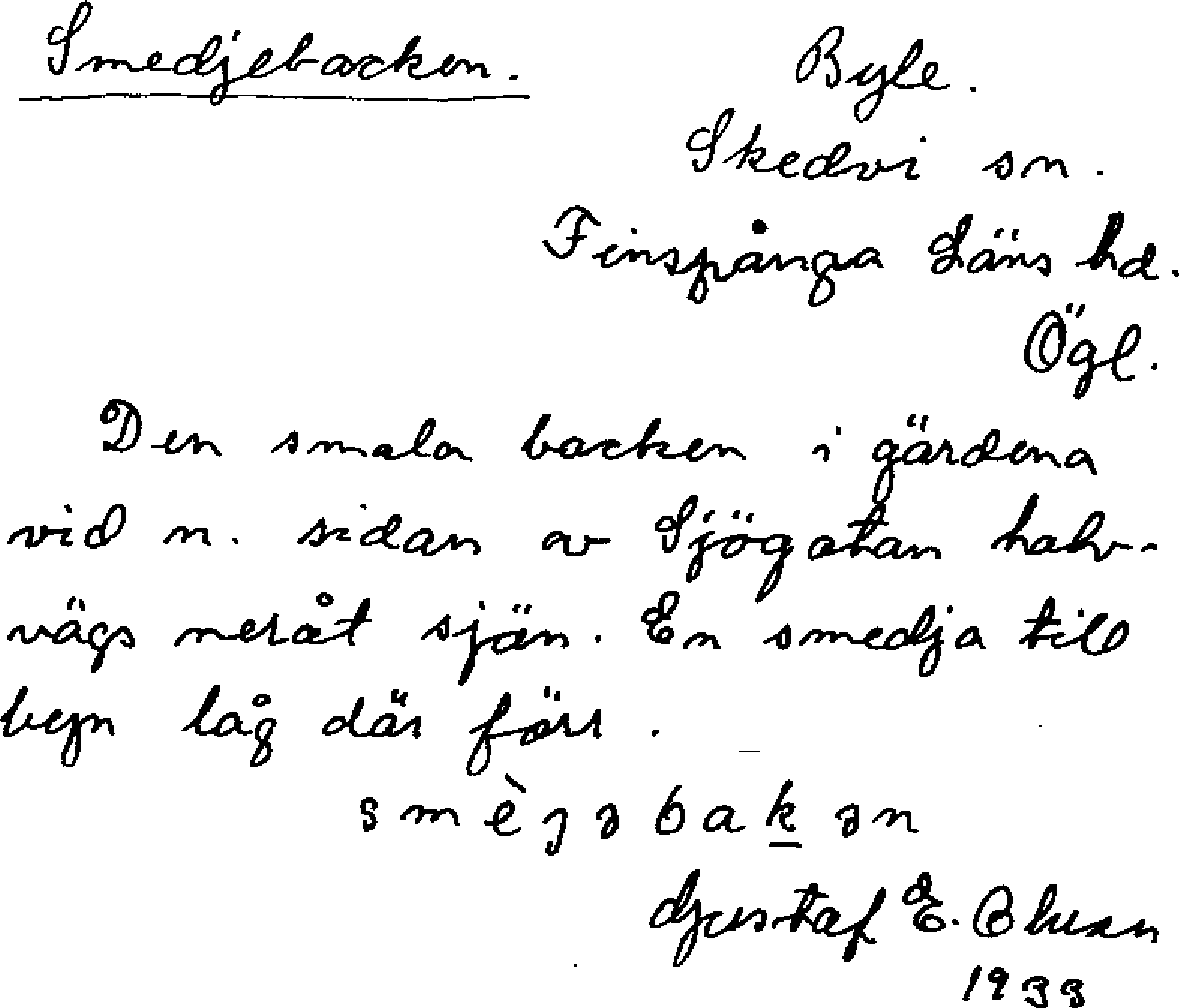 Smedjebacken.
Byle.
Skedvi sn.
Finspånga Läns hd.
Ögl.
Den smala backen i gärdena
vid n. sidan av Sjögatan halv-
vägs neråt sjön. En smedja till
byn låg där förr.
smèjəbakən
Gustaf E.
1933